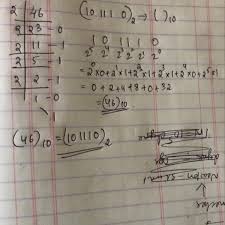 2 | 46
2 | 23 - 0
2 | 11 - 1
2 | 5 - 1
2 | 2 - 1
1 - 0
(10 111 0)₂ → ( )₁₀
1 0 1 1 1 0
2⁵ 2⁴ 2³ 2² 2¹ 2⁰
= 2⁰x0 + 2¹x1 + 2²x1 + 2³x1 + 2⁴x0 + 2⁵x1
= 0 + 2 + 4 + 8 + 0 + 32
= (46)₁₀
(46)₁₀ = (101110)₂